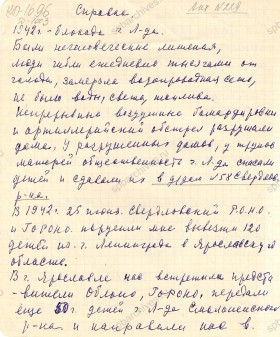 НП-1696
Справка.
1942г - блокада г. Л-да.
Были нечеловеческие лишения,
люди гибли ежедневно тысячами от
голода, замерзла водопроводная сеть,
не было воды, света, топлива.
Непрерывно воздушные бомбардировки
и артиллерийский обстрел разрушали
дома. У разрушенных домов, у трупов
матерей общественность г. Л-да спасали
детей и сдавали их в д/дом №58 Свердлов.
р-на.
В 1942г. 25 июня. Свердловский Р.О.Н.О.
и ГорОНО. поручили мне вывезти 120
детей из г. Ленинграда в Ярославскую
область.
В г. Ярославле нас встретили предста-
вители ОблОно, ГорОНО, передали
еще 50 детей г. Л-да Смольнинского
р-на и направили нас в